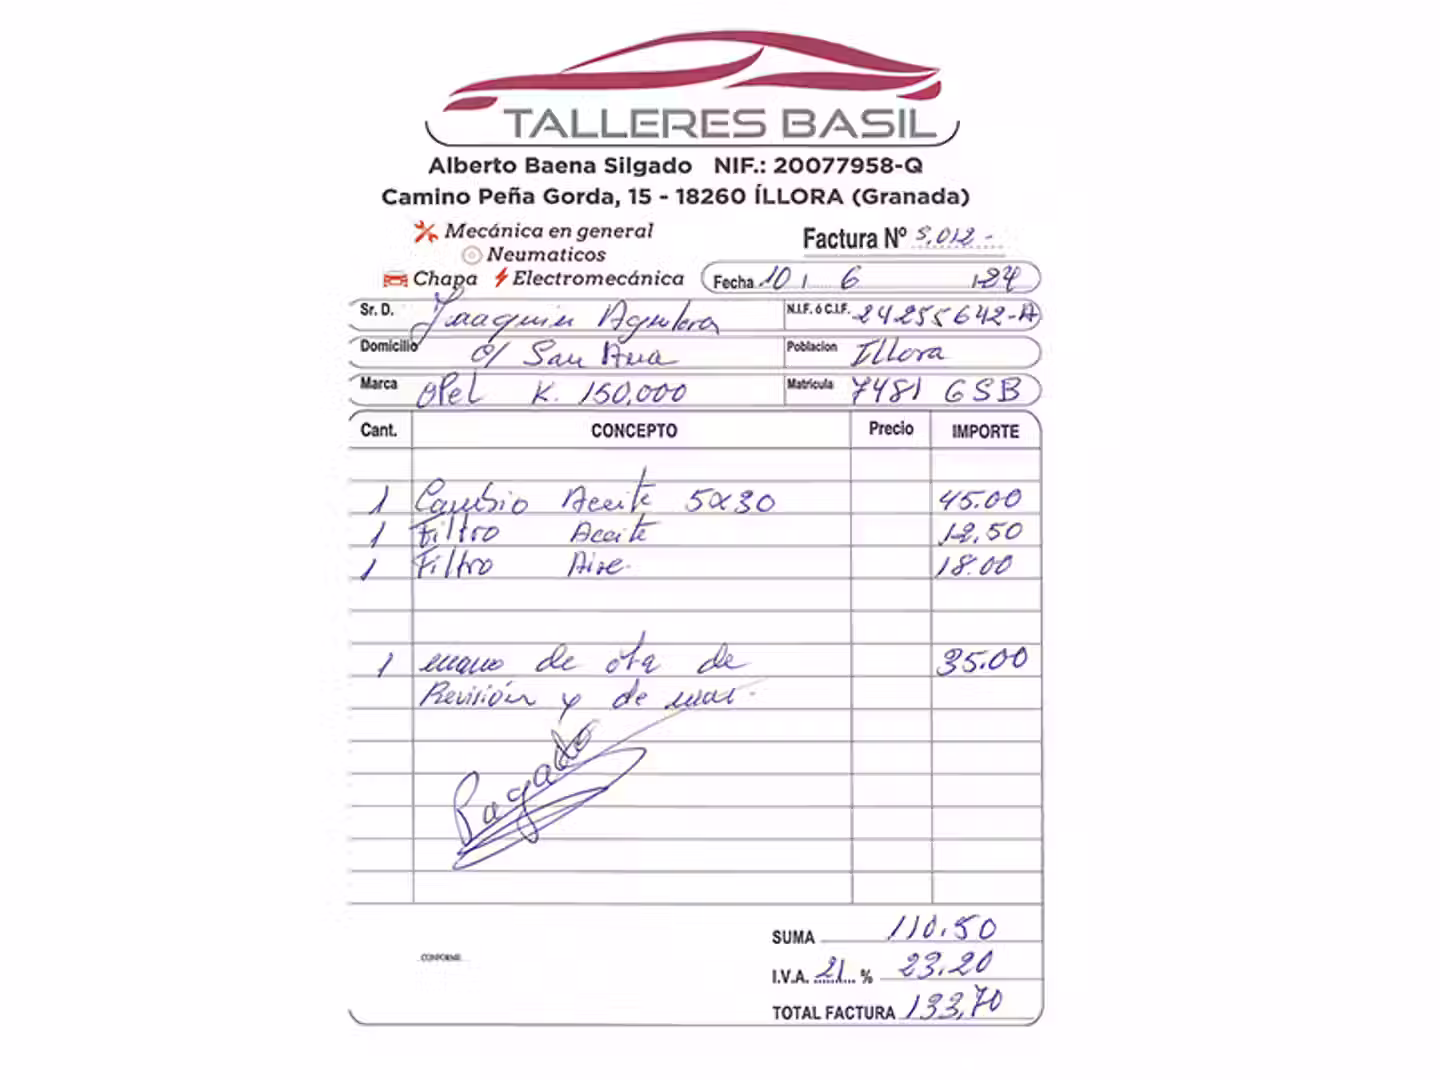 TALLERES BASIL
Alberto Baena Silgado NIF.: 20077958-Q
Camino Peña Gorda, 15 - 18260 ÍLLORA (Granada)
Mecánica en general
Neumaticos
Chapa Electromecánica
Factura Nº 5,012-
Fecha 10 / 6 / 24
Sr. D. Joaquin Aguilera N.I.F. ó C.I.F. 24255642-A
Domicilio c/ San Ana Poblacion Illora
Marca OPel K. 150,000 Matricula 7481 GSB
Cant. CONCEPTO Precio IMPORTE
1 Cambio Aceite 5x30 45.00
1 Filtro Aceite 12,50
1 Filtro Aire. 18.00
1 mano de obra de 35.00
Revisión y de mas.
Pagado
SUMA 110.50
CONFORME
I.V.A. 21 % 23.20
TOTAL FACTURA 133,70